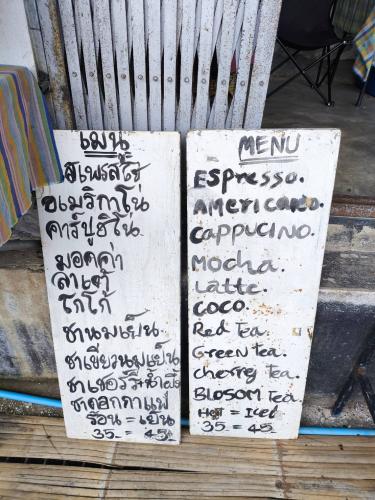 เมนู
อเมริกาโน่
คาร์ปูชิโน่.
มอคค่า
ลาเต้
โกโก้
ชานมเย็น.
ชาเขียวนมเย็น
ชาดอกกาแฟ
ร้อน = เย็น
35.- = 45.-
MENU
Espresso.
AMERICANO.
CAPPUCINO.
Mocha.
Latte.
COCO.
Red Tea.
Green tea.
cherry tea.
BLOSOM tea.
Hot = Iced
35 = 45